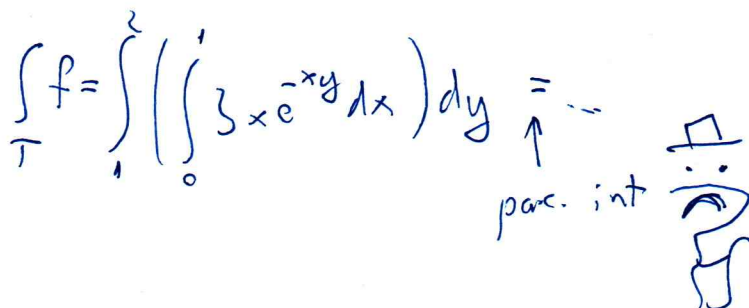 ∫_T f = ∫_1^2 ( ∫_0^1 3 x e^{-xy} dx ) dy = ...
↑
par. int